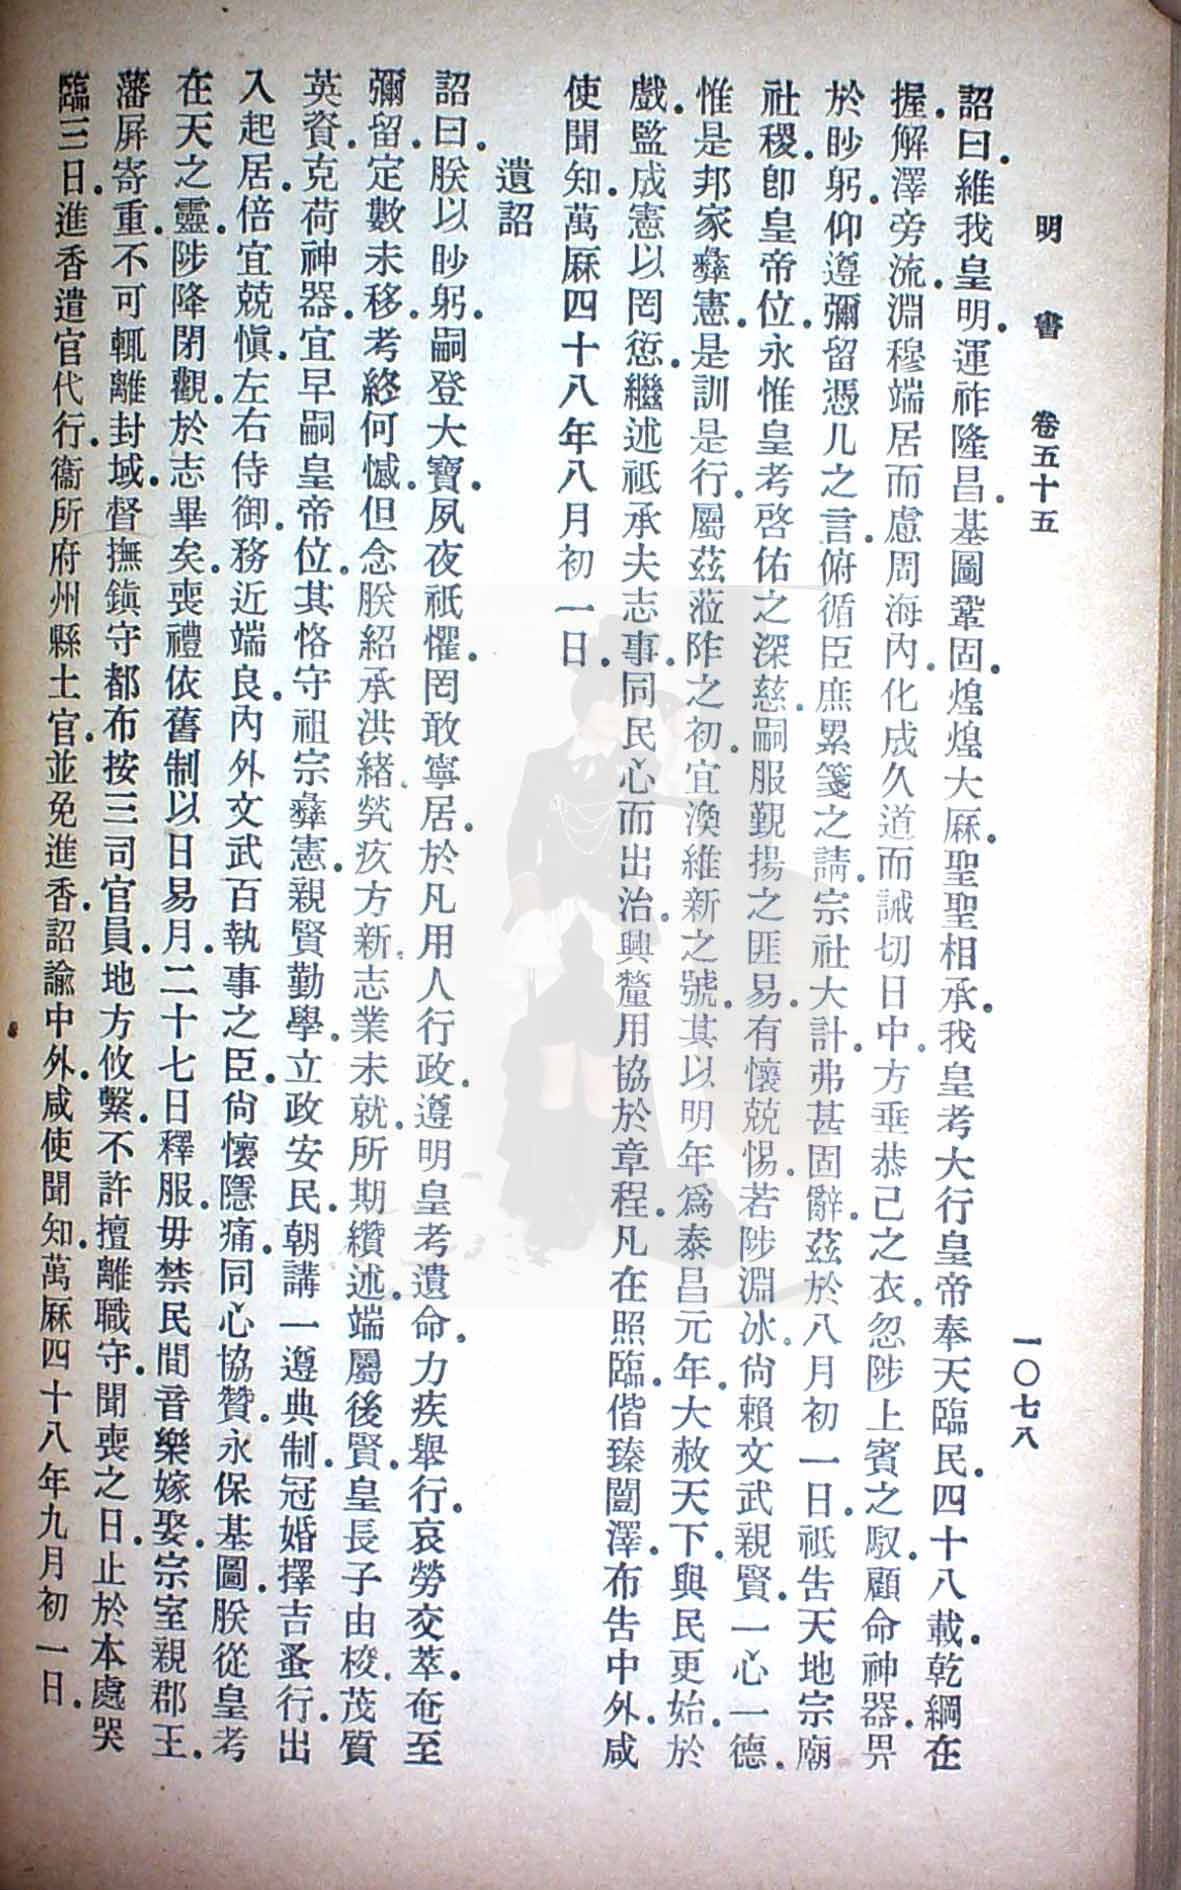 明書 卷五十五 一〇七八
詔曰.維我皇明.運祚隆昌.基圖鞏固.煌煌大厤.聖聖相承.我皇考大行皇帝奉天臨民.四十八載.乾綱在
握.解澤旁流.淵穆端居.而慮周海內.化成久道.而誠切日中.方垂恭己之衣.忽陟上賓之馭.顧命神器.畀
於眇躬.仰遵彌留憑几之言.俯循臣庶累箋之請.宗社大計.弗甚固辭.茲於八月初一日.祗告天地宗廟
社稷.卽皇帝位.永惟皇考啓佑之深慈.嗣服覲揚之匪易.有懷兢惕.若陟淵冰.尙賴文武親賢.一心一德.
惟是邦家彝憲.是訓是行.屬茲蒞阼之初.宜渙維新之號.其以明年爲泰昌元年.大赦天下.與民更始.於
戲.監成憲以罔愆.繼述祗承夫志事.同民心而出治.興釐用協於章程.凡在照臨.偕臻闓澤.布告中外.咸
使聞知.萬厤四十八年八月初一日.
遺詔
詔曰.朕以眇躬.嗣登大寶.夙夜祗懼.罔敢寧居.於凡用人行政.遵明皇考遺命.力疾舉行.哀勞交萃.奄至
彌留.定數未移.考終何憾.但念朕紹承洪緒.煢疚方新.志業未就.所期纘述.端屬後賢.皇長子由梭.茂質
英資.克荷神器.宜早嗣皇帝位.其恪守祖宗彝憲.親賢勤學.立政安民.朝講一遵典制.冠婚擇吉蚤行.出
入起居.倍宜兢愼.左右侍御.務近端良.內外文武百執事之臣.尙懷隱痛.同心協贊.永保基圖.朕從皇考
在天之靈.陟降閒觀.於志畢矣.喪禮依舊制.以日易月.二十七日釋服.毋禁民間音樂嫁娶.宗室親郡王.
藩屏寄重.不可輒離封域.督撫鎭守都布按三司官員.地方攸繫.不許擅離職守.聞喪之日.止於本處哭
臨三日.進香遣官代行.衞所府州縣土官.並免進香.詔諭中外.咸使聞知.萬厤四十八年九月初一日.